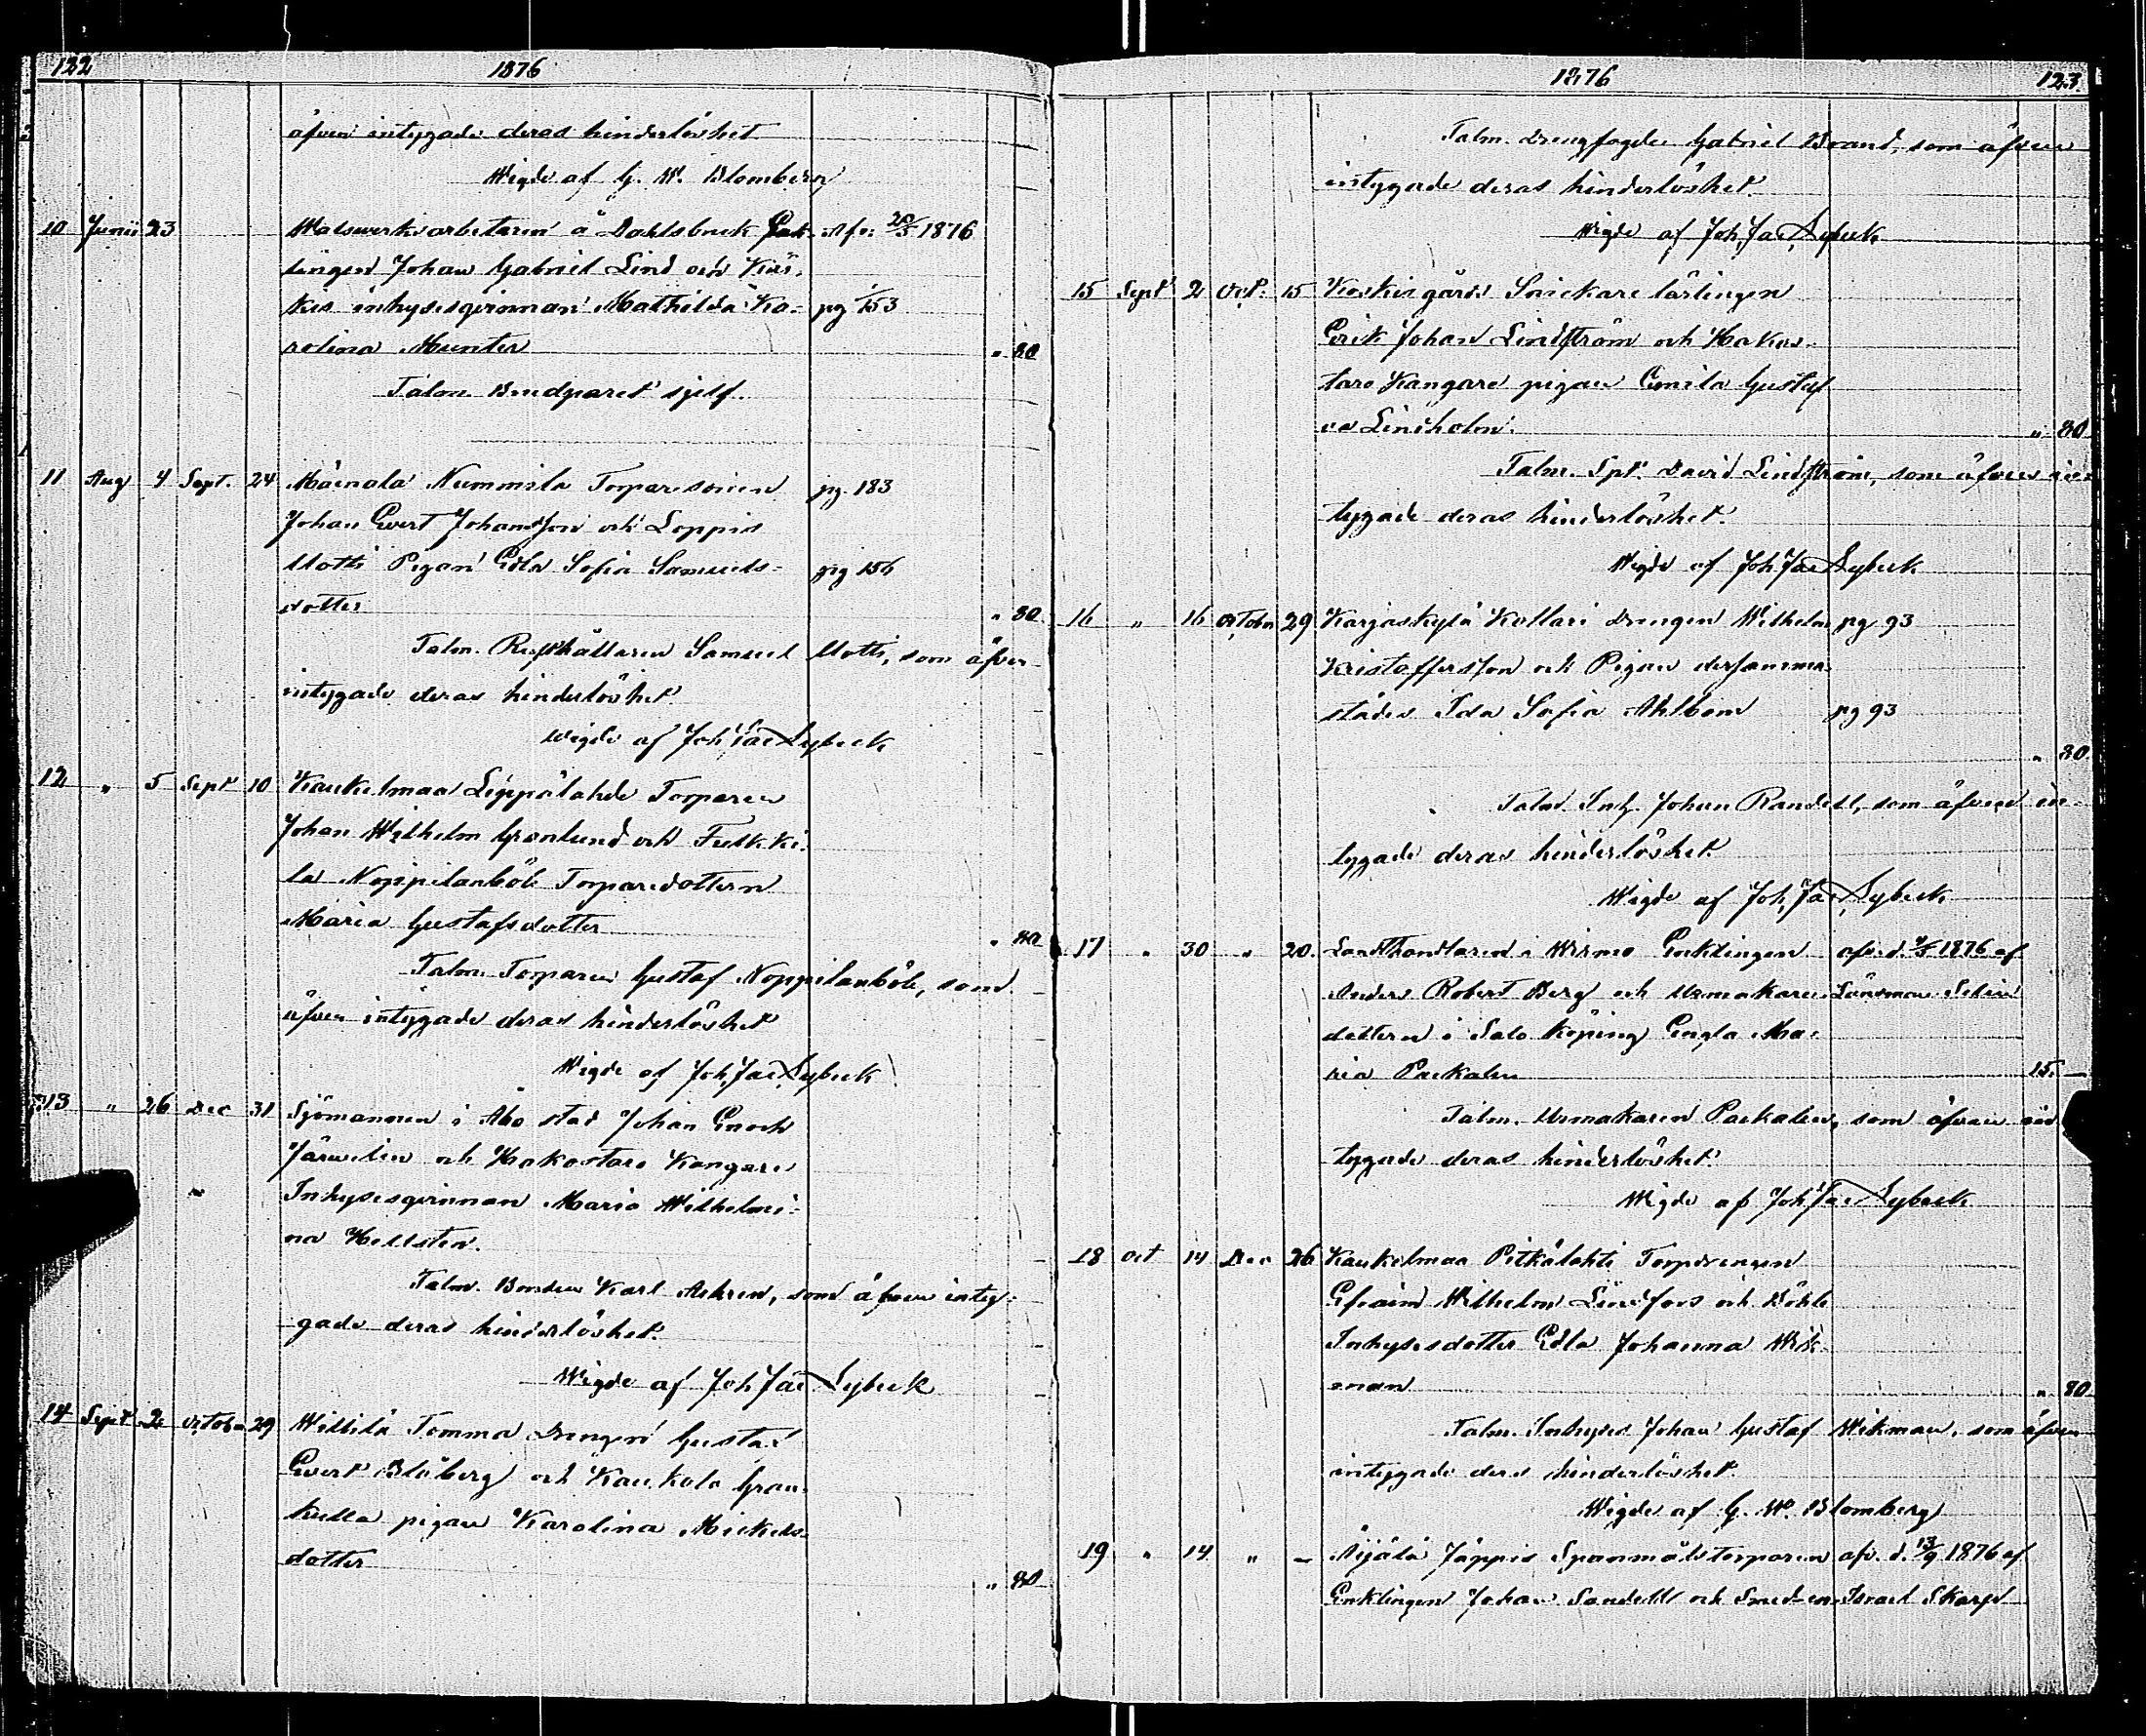 122 1876
äfven intygade deras hinderlöshet
Wigde af G. W. Blomberg
10 Junii 23 Walsverksarbetaren å Dahlsbruk Afv: 20/5 1876
lingen Johan Gabriel Lind och Kär-
kis inhysesqvinnan Mathilda Ka- pg 153
rolina Munter " 80
Talm. Brudparet sjelf.
11 Aug 4 Sept. 24 Mäenala Nummila Torparesonen pg. 183
Johan Evert Johansson och Loppis
Uotti Pigan Edla Sofia Samuels- pg 156
dotter " 80.
Talm. Rusthållaren Samuel Uotti, som äfven
intygade deras hinderlöshet.
Wigde af Joh Jac Lybeck
12 " 5 Sept 10 Kaukelmaa Leppälahde Torparen
Johan Wilhelm Grönlund och Fulkki-
la Noppilanböle Torparedottern
Maria Gustafsdotter " 80
Talm. Torparen Gustaf Noppilanböle, som
äfven intygade deras hinderlöshet
Wigde af Joh, Jac Lybeck
13 " 26 Dec 31 Sjömannen i Åbo stad Johan Enoch
Järvelin och Hakostaro Kangare
Inhysesqvinnan Maria Wilhelmi-
na Hellsten.
Talm. Bonden Karl Ahren, som äfven inty-
gade deras hinderlöshet.
Wigde af Joh Jac Lybeck
14 Sept 2 October 29 Willilä Tomma Drengen Gustaf
Evert Blåberg och Kaukola Gran-
kulla pigan Karolina Mickels-
dotter " 80
1876 123.
Talm. Drengfogden Gabriel Brand, som äfven
intygade deras hinderlöshet.
Wigde af Joh, Jac, Lybeck
15 Sept 2 Oct. 15 Koskis gårds Snickare lärlingen
Erik Johan Lindström och Hakos-
taro Kangare pigan Emila Gustaf
va Lindholm. " 80
Talm. Spt. David Lindström, som äfven in-
tygade deras hinderlöshet.
Wigde af Joh Jac Lybeck
16 " 16 October 29 Karjaskylä Kollari Drengen Wilhelm pg 93
Kristoffersson och Pigan dersamma-
städes Ida Sofia Ahlbom pg 93
" 80.
Talm. Inh. Johan Randell, som äfven in-
tygade deras hinderlöshet.
Wigde af Joh, Jac, Lybeck
17 " 30 " 20. Landthandlaren i Wirmo Enklingen afv. d. 1876 af
Anders Robert Berg och Urmakare Länsman
dottern i Salo köping Engla Ma-
ria Paekalen 15. —
Talm. Urmakaren Paekalen, som äfven in
tygade deras hinderlöshet.
Wigde af Joh Jac Lybeck
18 Oct 14 Dec 26 Kaukelmaa Pitkälahti Torpdrengen
Efraim Wilhelm Lindfors och Böhle
Inhysesdotter Edla Johanna Wik-
man " 80
Talm. Inhyses Johan Gustaf Wikman, som äfven
intygade deras hinderlöshet.
Wigde af G. W. Blomberg
19 " 14 " — Äijälä Jäppis Spanmålstorparen afv. d. 13/9 1876 af
Enklingen Johan Sandell och Smeden Israel Skarp